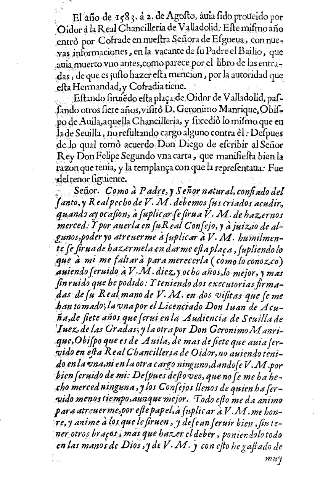 El año de 1583. à 2. de Agosto, auia sido proueido por
Oidor à la Real Chancilleria de Valladolid. Este mismo año
entrò por Cofrade en nuestra Señora de Esgueua, con nue-
vas informaciones, en la vacante de su Padre el Bailio, que
auia muerto vno antes, como parece por el libro de las entra-
das, de que es justo hazer esta mencion, por la autoridad que
esta Hermandad, y Cofradia tiene.
Estando siruiēdo esta plaça de Oidor de Valladolid, pas-
sando otros siete años, visitò D. Geronimo Manrique, Obis-
po de Auila, aquella Chancilleria, y sucediò lo mismo que en
la de Seuilla, no resultando cargo alguno contra èl: Despues
de lo qual tomò acuerdo Don Diego de escribir al Señor
Rey Don Felipe Segundo vna carta, que manifiesta bien la
razon que tenia, y la templança con que la representaua: Fue
del tenor siguiente.
Señor. Como à Padre, y Señor natural, confiado del
santo, y Real pecho de V. M. debemos sus criados acudir,
quando ay ocasion, à suplicar se sirua V. M. de hazernos
merced. Y por auerla en su Real Consejo, y à juizio de al-
gunos, poder yo atreuerme à suplicar à V. M. humilmen-
te se sirua de hazermela en darme esta plaça, supliendo lo
que à mi me faltarà para merecerla (como lo conozco)
auiendo seruido à V. M. diez, y ocho años, lo mejor, y mas
sin ruido que he podido: Y teniendo dos executorias firma-
das de su Real mano de V. M. en dos visitas que se me
han tomado; la vna por el Licenciado Don Iuan de Acu-
ña, de siete años que serui en la Audiencia de Seuilla de
Iuez, de las Gradas; y la otra por Don Geronimo Manri-
que, Obispo que es de Auila, de mas de siete que auia ser-
vido en esta Real Chancilleria de Oidor, no auiendo teni-
do en la vna, ni en la otra cargo ninguno, dandose V. M. por
bien seruido de mi: Despues destos ves, que no se me ha he-
cho merced ninguna, y los Consejos llenos de quien ha ser-
vido menos tiempo, aunque mejor. Todo esto me da animo
para atreuerme, por este papel, à suplicar à V. M. me hon-
re, y anime à los que le siruen, y dessean seruir bien, sin te-
ner otros braços, mas que hazer el deber, poniendolo todo
en las manos de Dios, y de V. M. y con esto he gastado de
muy